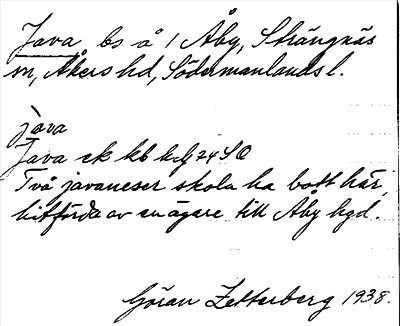 Java bs å 1 Åby, Strängnäs
sn, Åkers hd, Södermanlands l.
jàva
Java ek kb 24 SO
Två javaneser skola ha bott här,
hitförda av en ägare till Åby hgd.
Göran Zetterberg 1938.